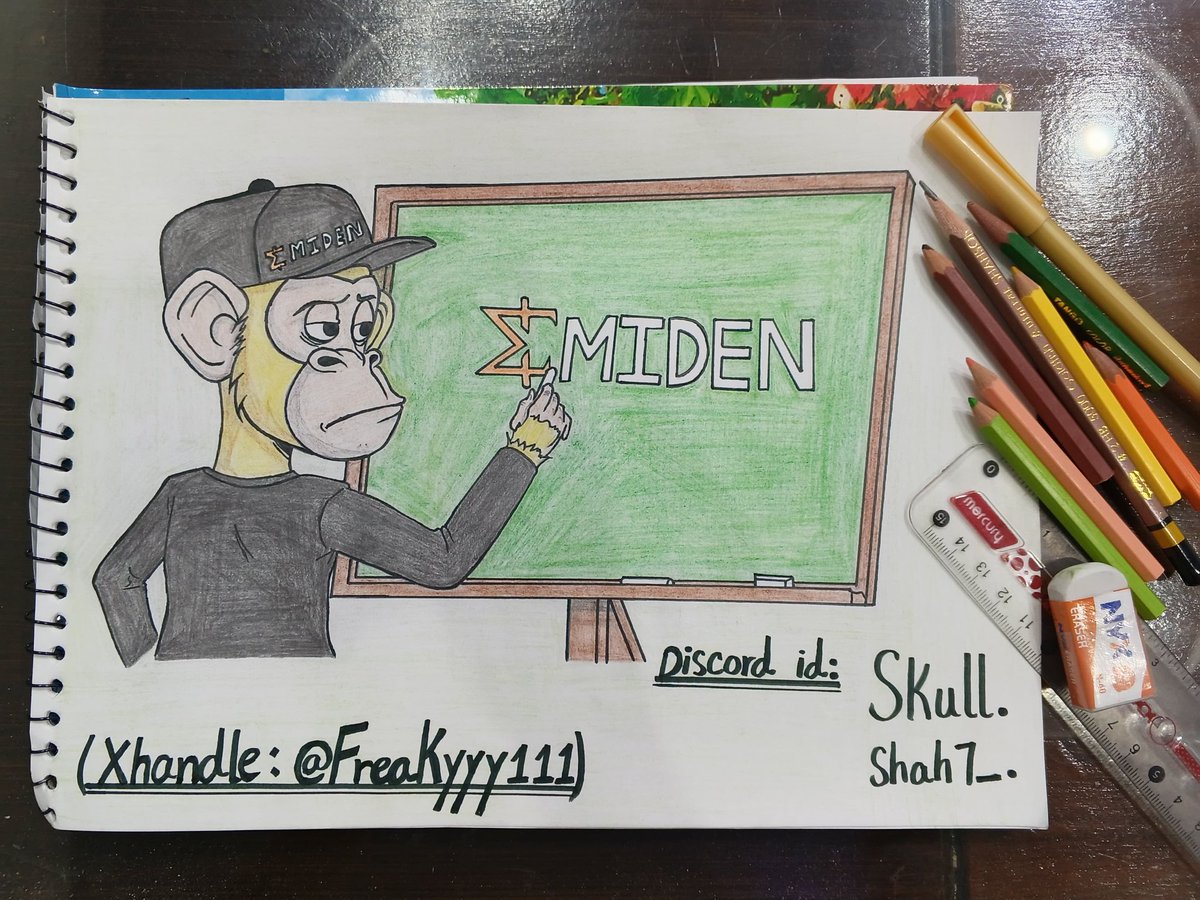 MIDEN
MIDEN
Discord id:
SKull.
Shah7_.
(Xhandle: @FreaKyyy111)
mercury
0
15
14
13
12
11
ERASER
1
3
7
6
5
4